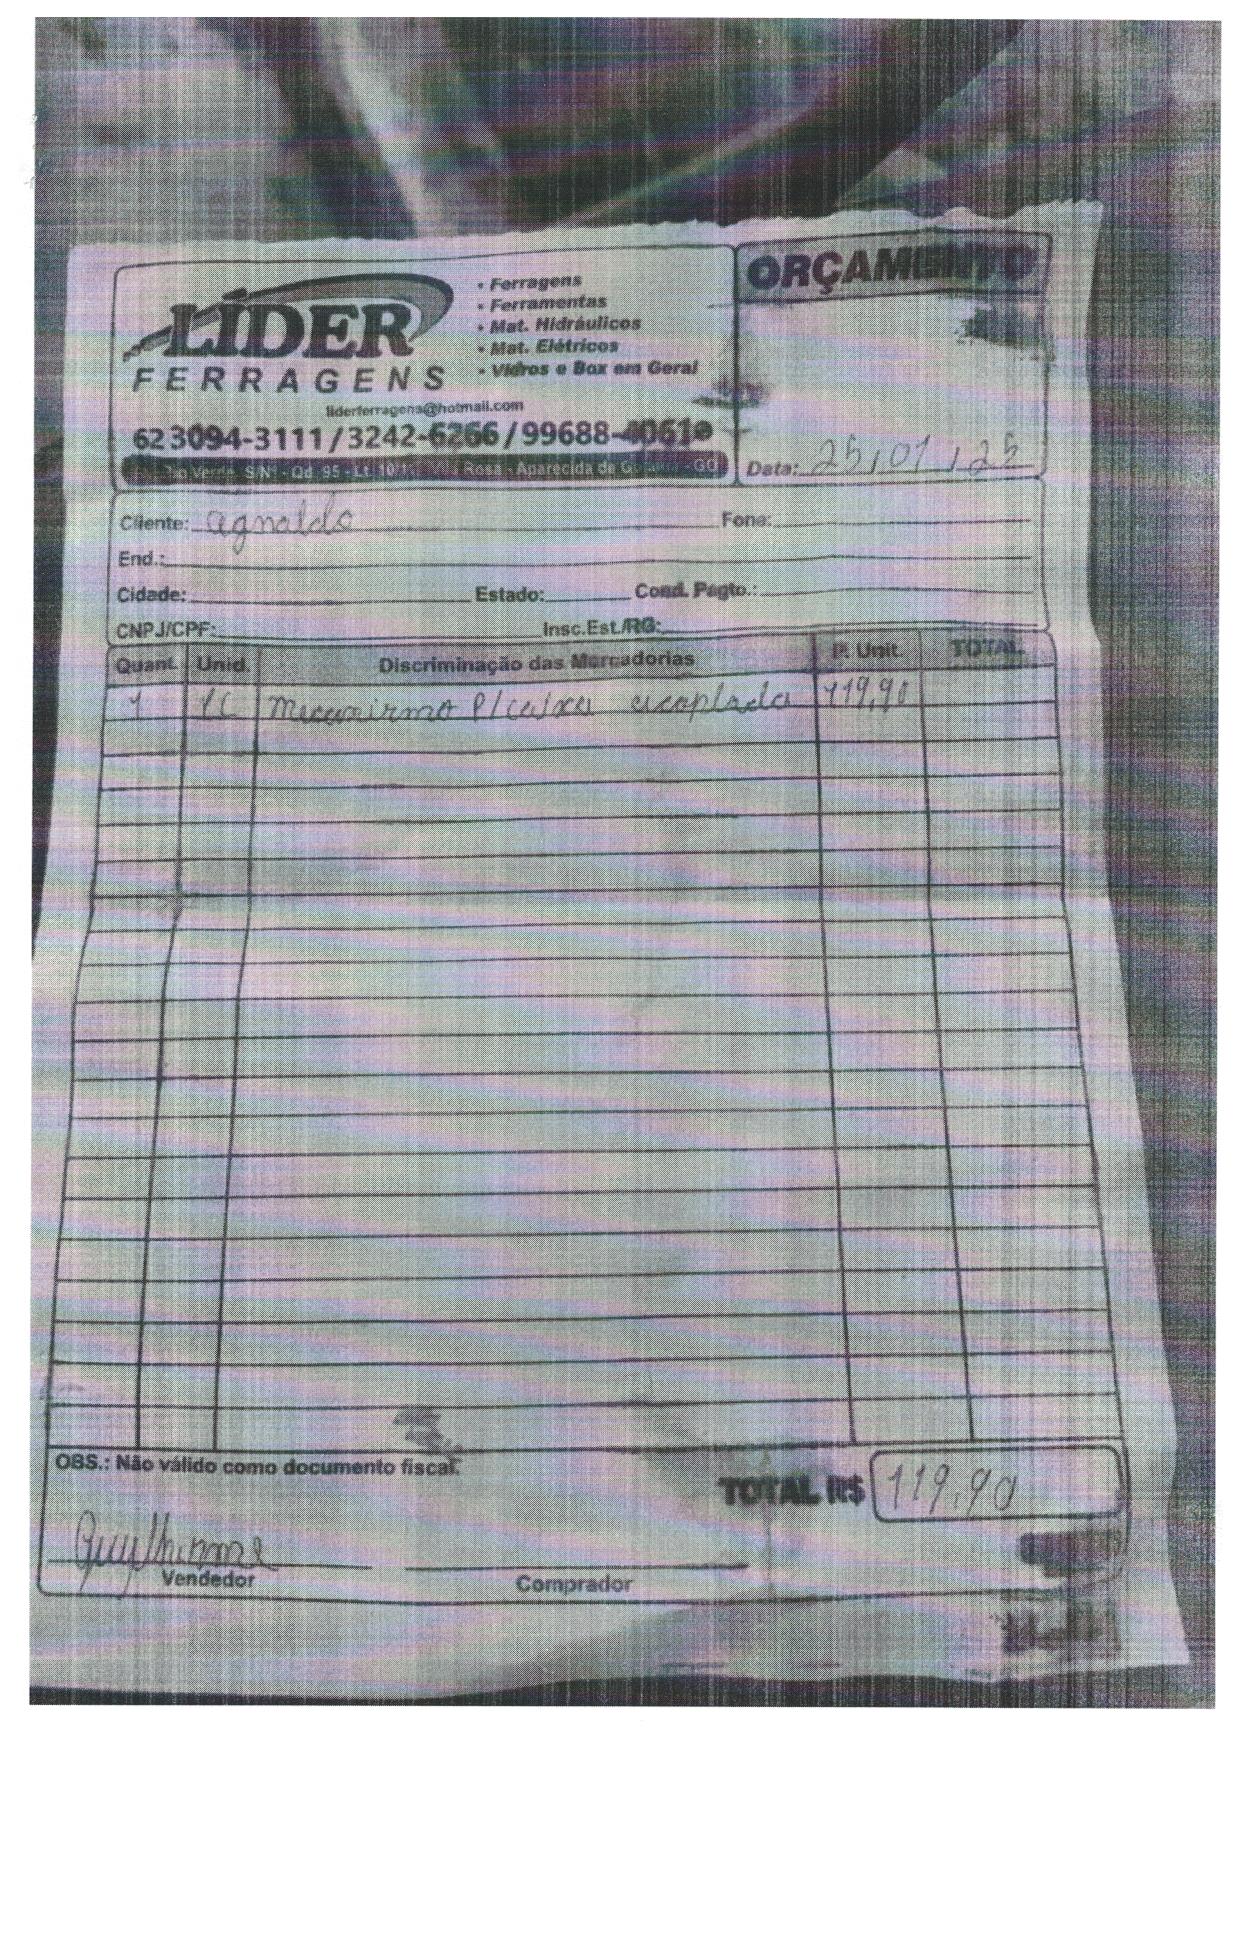 LÍDER
FERRAGENS
• Ferragens
• Ferramentas
• Mat. Hidráulicos
• Mat. Elétricos
• Vidros e Box em Geral
liderferragens@hotmail.com
62 3094-3111 / 3242-6266 / 99688-4061
Rio Verde, S/Nº - Qd. 95 - Lt. - Vila Rosa - Aparecida de Goiânia - GO
ORÇAMENTO
Data: 25/01/25
Cliente: agnaldo Fone:
End.:
Cidade: Estado: Cond. Pagto.:
CNPJ/CPF: Insc.Est./RG:
Quant. Unid. Discriminação das Mercadorias P. Unit. TOTAL
1 PC mecanismo p/ caixa acoplada 119,90
OBS.: Não válido como documento fiscal.
TOTAL R$ 119,90
Guylherme
Vendedor Comprador